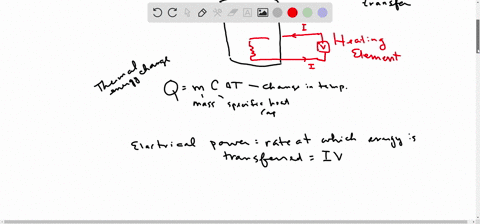 transfer
I
V
Heating
Element
I
Thermal change
energy
Q = m C ΔT — change in temp.
mass specific heat
cap
Electrical power = rate at which energy is
transferred = IV